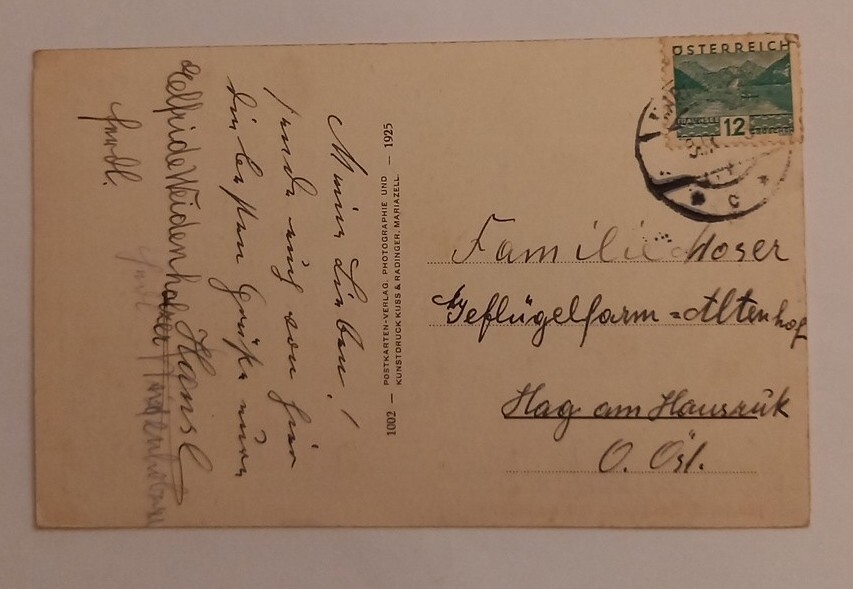 Meine Lieben!
sende euch von hier
die besten Grüße eure
Helfride Weidenholzer Hansl
Ferdl.
1002 — POSTKARTEN-VERLAG, PHOTOGRAPHIE UND — 1925
KUNSTDRUCK KUSS & RADINGER, MARIAZELL.
ÖSTERREICH
12 GROSCHEN
Familie Moser
Geflügelfarm = Altenhof
Hag am Hausruk
O. Öst.